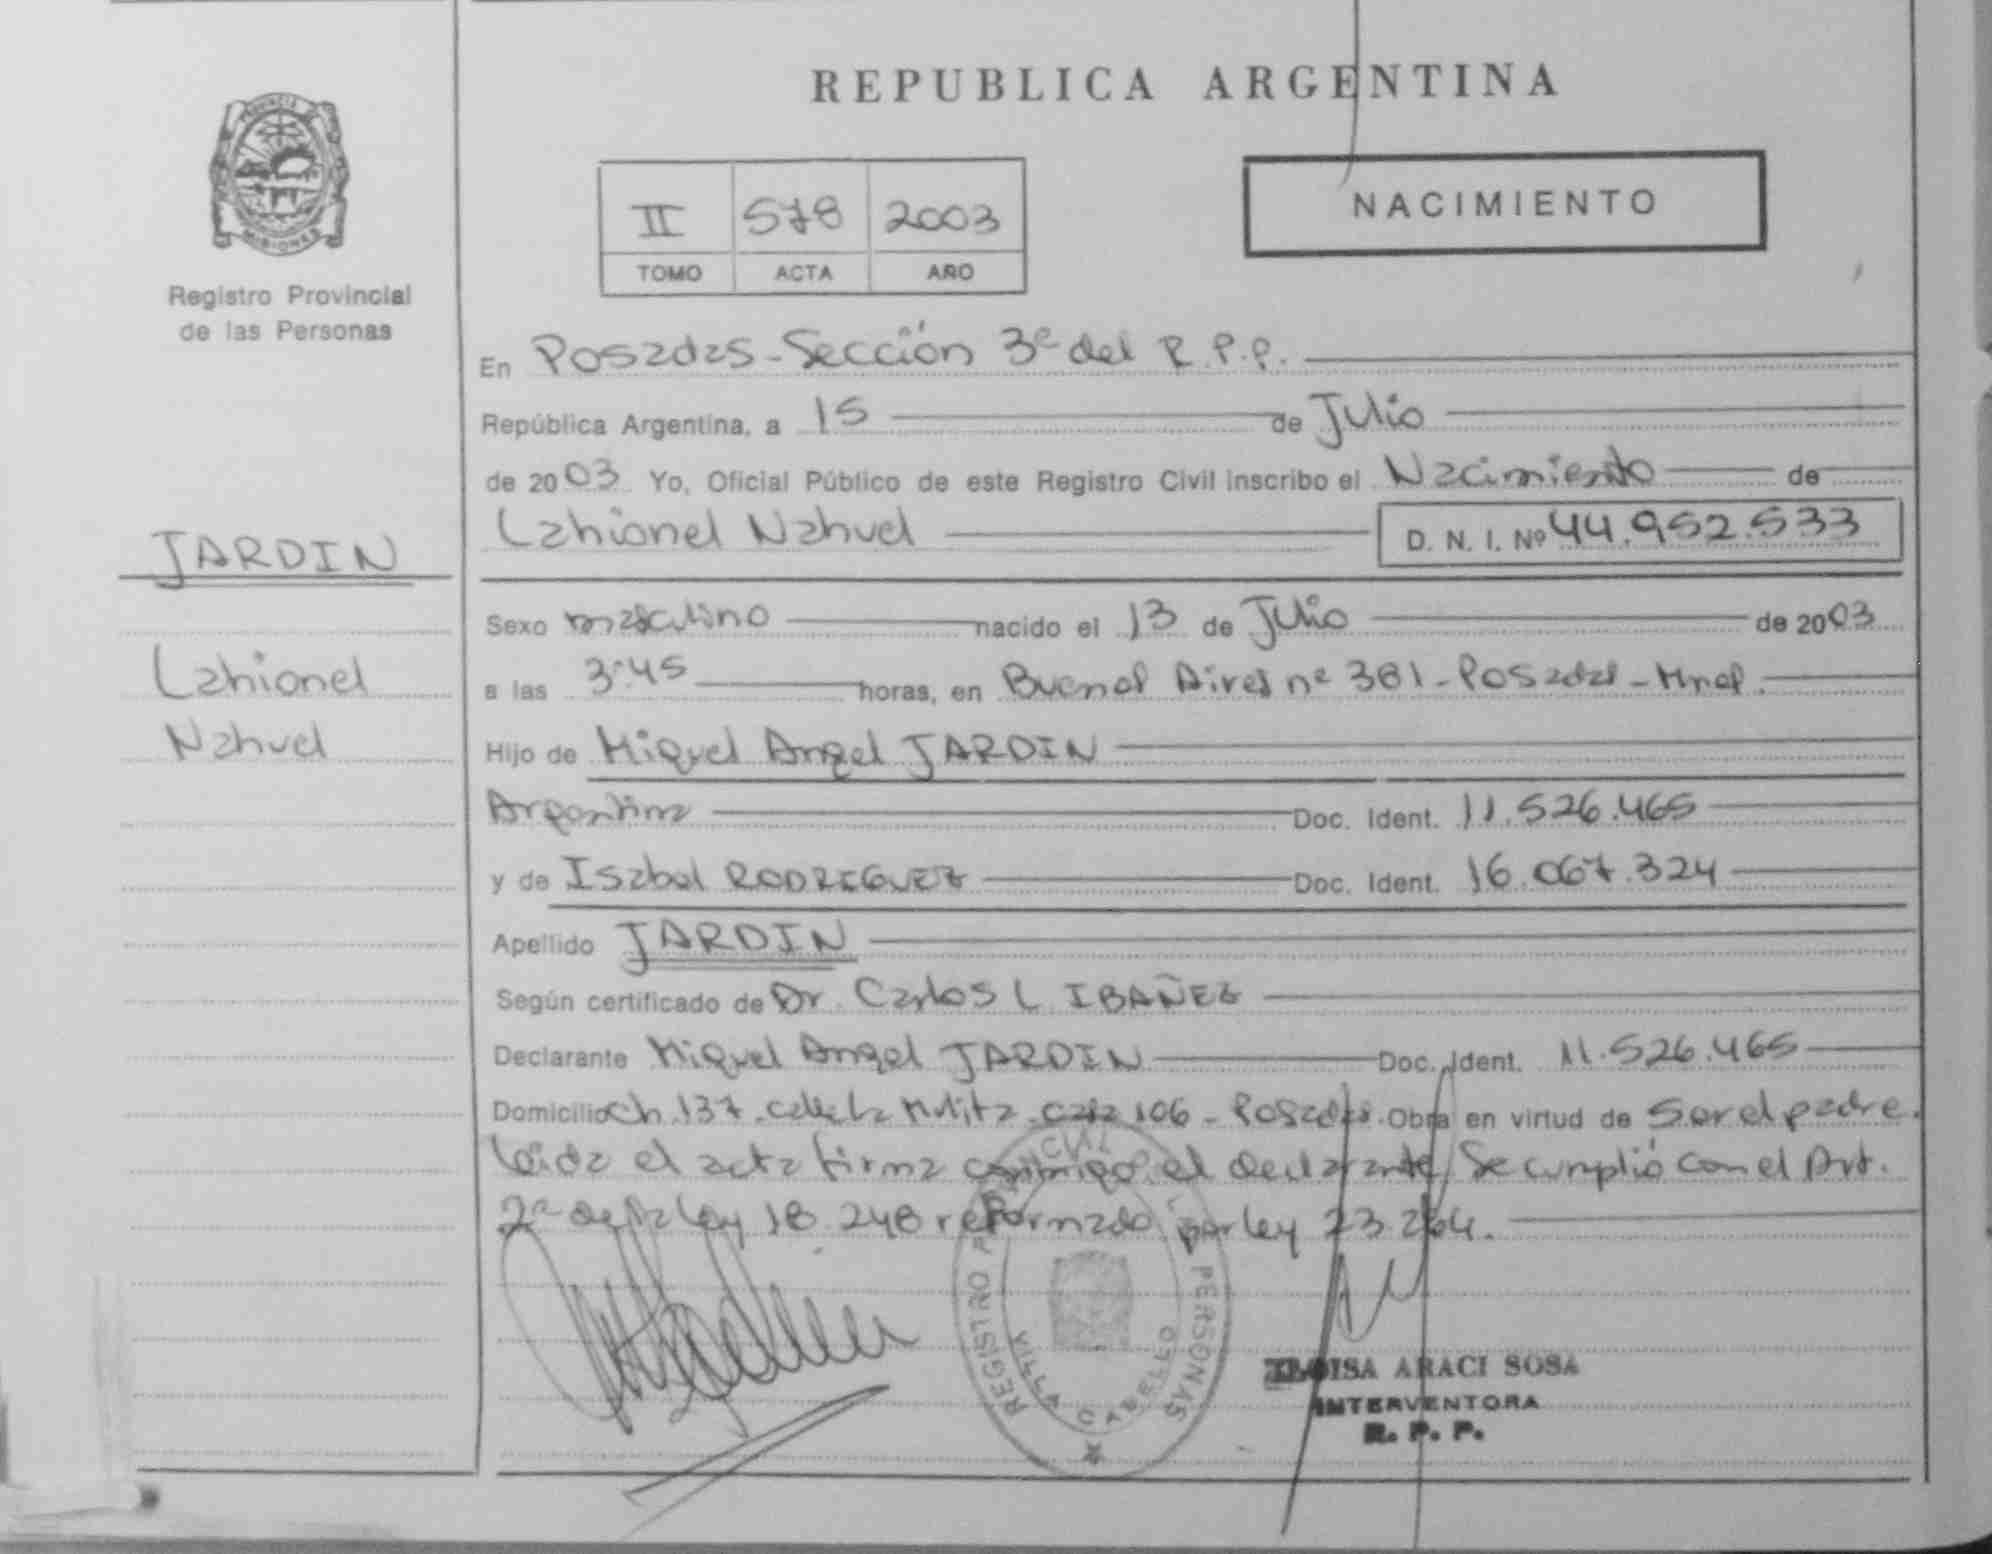 REPUBLICA ARGENTINA
PROVINCIA
MISIONES
Registro Provincial
de las Personas
II 578 2003
TOMO ACTA AÑO
NACIMIENTO
En Posadas - Sección 3ª del R.P.P.
República Argentina, a 15 de Julio
de 2003 Yo, Oficial Público de este Registro Civil inscribo el Nacimiento de
Lahionel Nahuel D. N. I. Nº 44.952.533
JARDIN
Lahionel
Nahuel
Sexo masculino nacido el 13 de Julio de 2003
a las 3:45 horas, en Buenos Aires nº 381 - Posadas - Mnes.
Hijo de Miguel Angel JARDIN
Argentina Doc. Ident. 11.526.465
y de Isabel RODRIGUEZ Doc. Ident. 16.067.324
Apellido JARDIN
Según certificado de Dr. Carlos L IBAÑEZ
Declarante Miguel Angel JARDIN Doc. Ident. 11.526.465
Domicilio Ch. 137 - calle La Mulita - casa 106 - Posadas. Obra en virtud de Ser el padre.
Leída el acta firma conmigo el declarante. Se cumplió con el Art.
2º de la ley 18.248 reformado por ley 23.264.
REGISTRO PROVINCIAL PERSONAS
VILLA CABELLO
ARACI SOSA
INTERVENTORA
R. P. P.